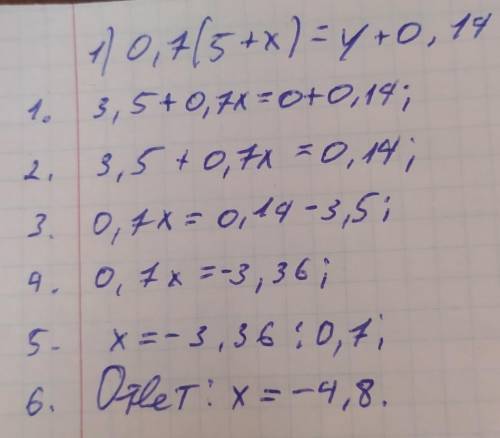 1) 0,7(5+x)=y+0,14
1. 3,5+0,7x=0+0,14;
2. 3,5+0,7x=0,14;
3. 0,7x=0,14-3,5;
4. 0,7x=-3,36;
5. x=-3,36:0,7;
6. Ответ: x=-4,8.